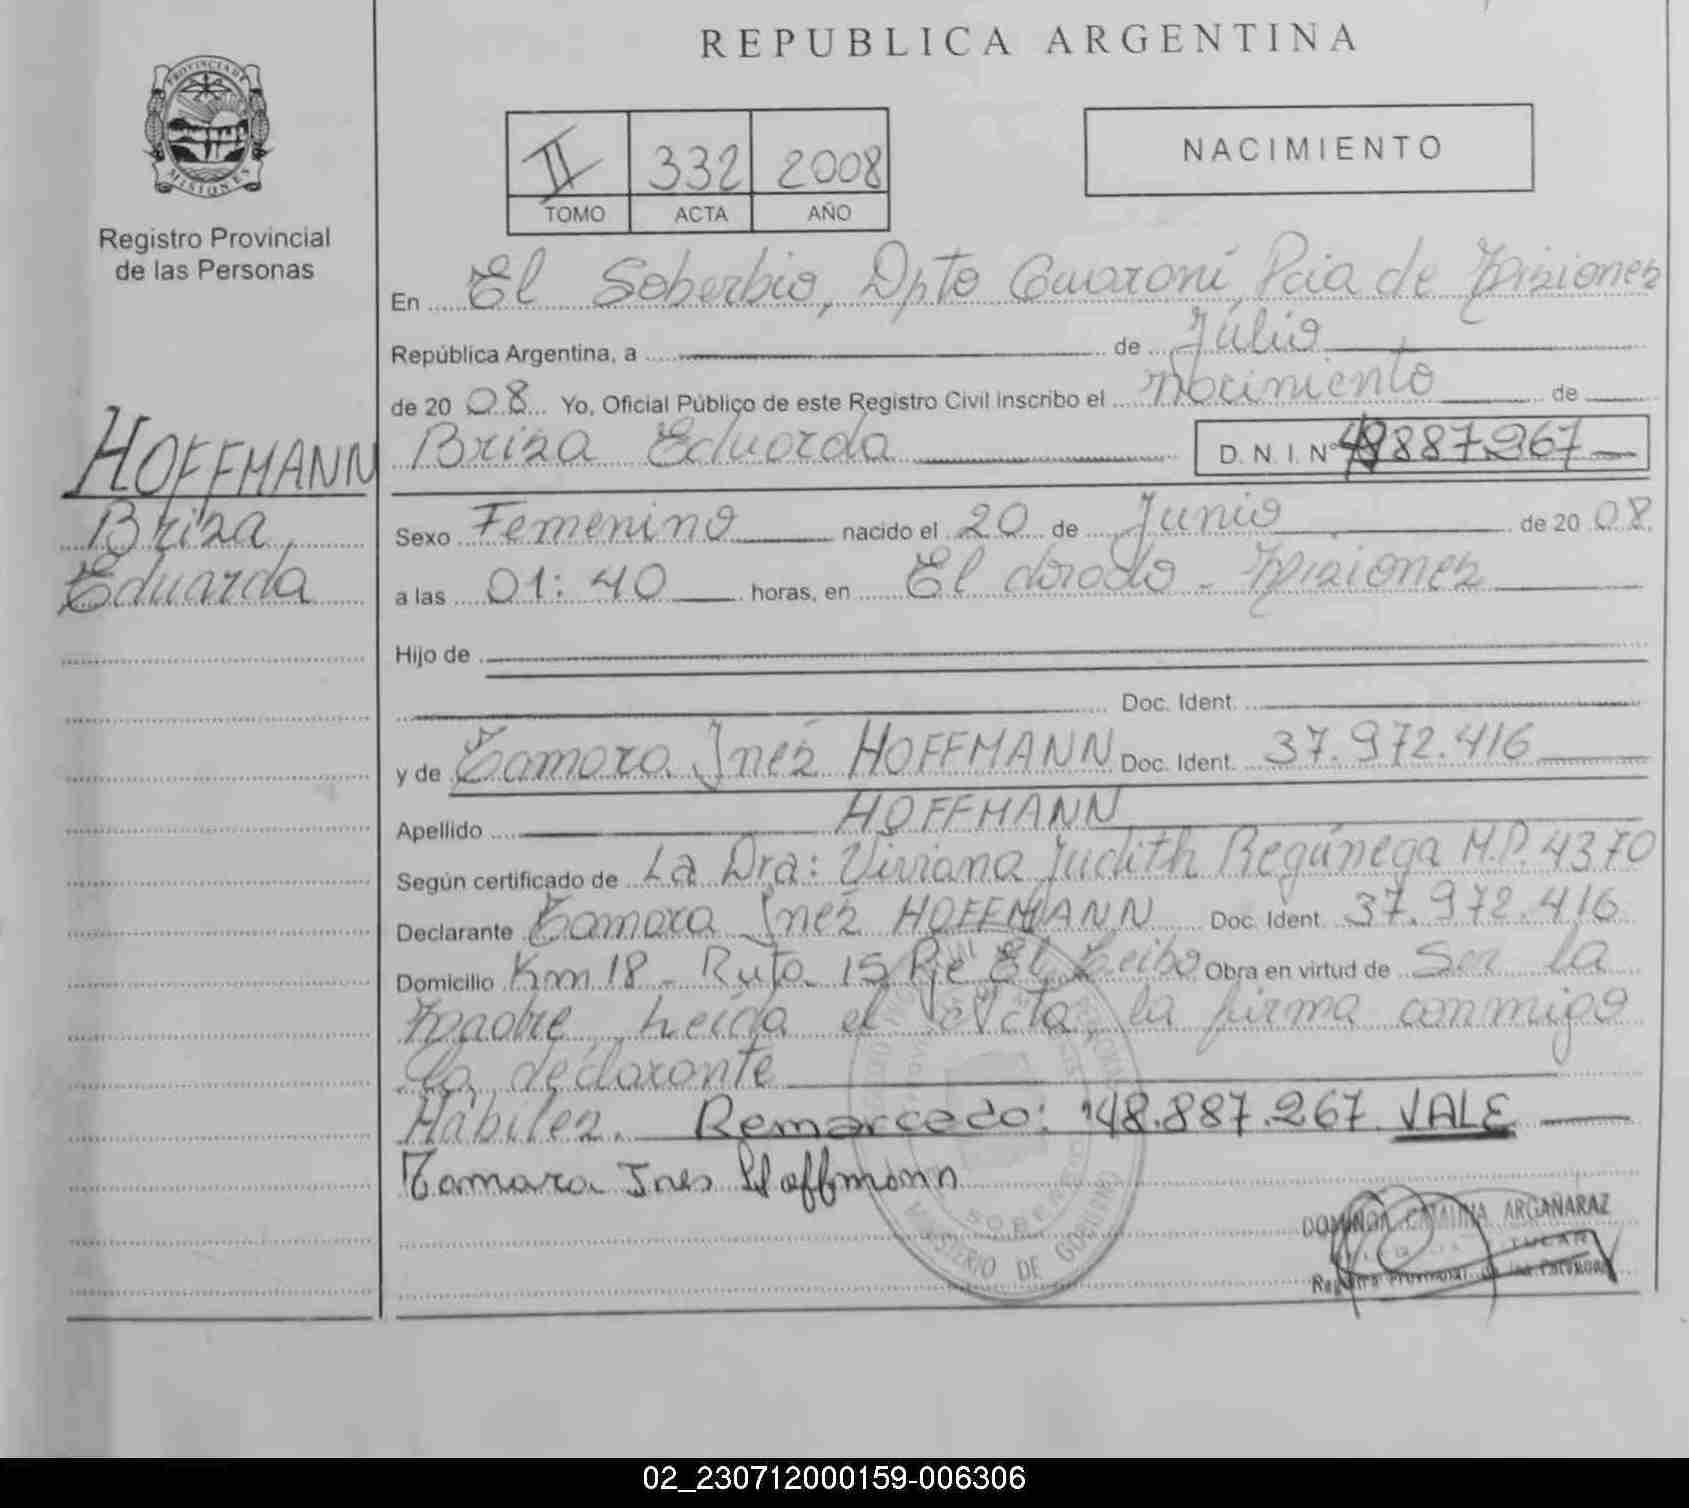 REPUBLICA ARGENTINA
PROVINCIA DE
MISIONES
Registro Provincial
de las Personas
II 332 2008
TOMO ACTA AÑO
NACIMIENTO
En El Soberbio, Dpto Guaraní, Pcia de Misiones
República Argentina, a de Júlio
de 2008 Yo, Oficial Público de este Registro Civil inscribo el nacimiento de
HOFFMANN
Briza
Eduarda
Briza Eduarda D.N.I. Nº 48887267
Sexo Femenino nacido el 20 de Junio de 2008
a las 01:40 horas, en El dorado - Misiones
Hijo de
Doc. Ident.
y de Tamara Inés HOFFMANN Doc. Ident. 37.972.416
Apellido HOFFMANN
Según certificado de La Dra: Viviana Judith Regúnega M.P. 4370
Declarante Tamara Inés HOFFMANN Doc. Ident. 37.972.416
Domicilio Km 18 - Ruta 15 Pje El Ceibo Obra en virtud de Ser la
Madre Leída el Acta, la firma conmigo
la declarante
Hábiles. Remarcado: 48.887.267 VALE
Tamara Ines Hoffmann
MINISTERIO DE GOBIERNO
DOMINGA CATALINA ARGAÑARAZ
TULAR
Registro Provincial de las Personas
02_230712000159-006306